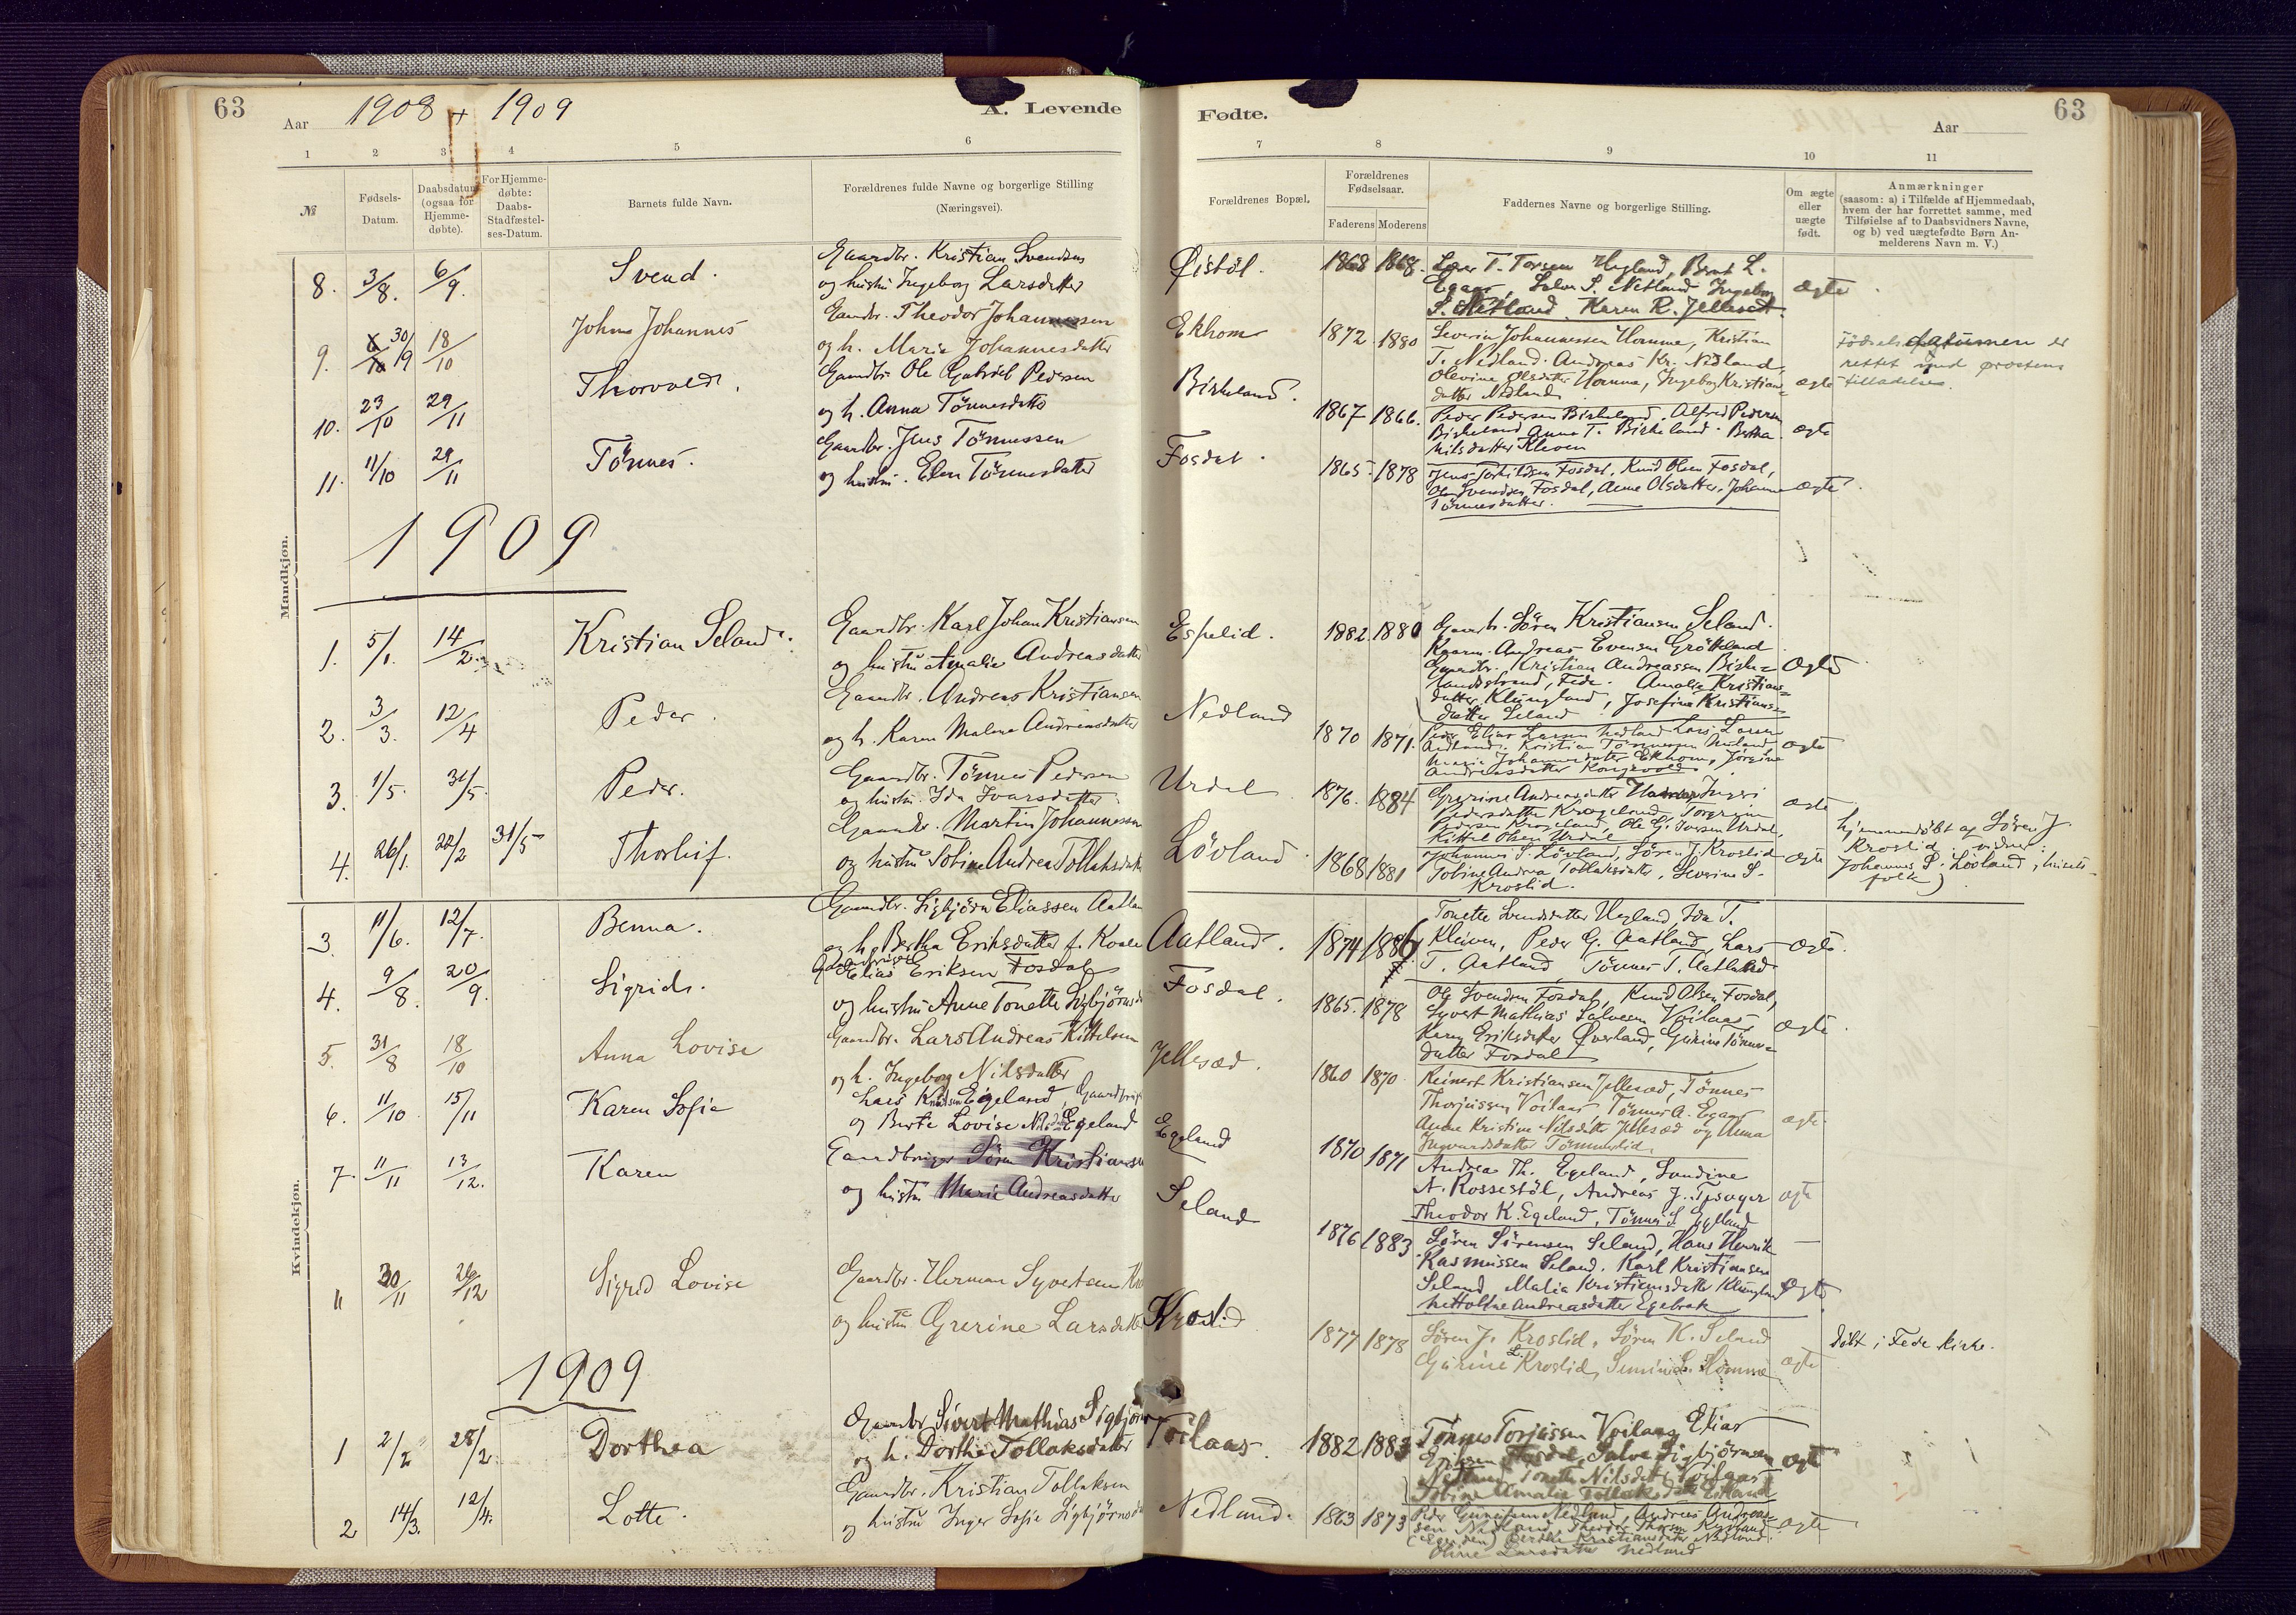 63
Aar 1908 + 1909
A. Levende
Fødte.
Aar
63
1 2 3 4 5 6 7 8 9 10 11
№
Fødsels-
Datum.
Daabsdatum
(ogsaa for
Hjemme-
døbte).
For Hjemme-
døbte:
Daabs-
Stadfæstel-
ses-Datum.
Barnets fulde Navn.
Forældrenes fulde Navne og borgerlige Stilling
(Næringsvei).
Forældrenes Bopæl.
Forældrenes
Fødselsaar.
Faderens Moderens
Faddernes Navne og borgerlige Stilling.
Om ægte
eller
uægte
født.
Anmærkninger
(saasom: a) i Tilfælde af Hjemmedaab,
hvem der har forrettet samme, med
Tilføielse af to Daabsvidners Navne,
og b) ved uægtefødte Børn An-
melderens Navn m. V.)
Mandkjøn.
8. 3/8. 6/9. Svend.
Gaardbr. Kristian Svendsen
og hustru Ingeborg Larsdatter
Øistöl. 1868 1868.
T. Torsen Hegland, Bernt L.
Egaas, S. Netland Ingeborg
S. Netland. Karen R. Jellesæd.
ægte
9. 30/9 18/10 Johan Johannes
Gaardbr. Theodor Johannessen
og h. Marie Johannesdatter
Ekhom 1872 1880
Severin Johannessen Homme, Kristian
T. Nedland. Andreas Kr. Nedland,
Olevine Olsdatter Homme, Ingeborg Kristians-
datter Nedland
ægte
Fødselsdatumen er
rettet med prostens
tilladelse.
10. 23/10 29/11 Thorvald.
Gaardbr. Ole Gabriel Pedersen
og h. Anna Tönnesdatter
Birkeland. 1867 1866.
Peder Pedersen Birkeland, Alfred Pedersen
Birkeland Anna T. Birkeland. Bertha
Nilsdatter Kleven
ægte
11. 11/10 29/11 Tönnes.
Gaardbr. Jens Tönnessen
og hustru. Elen Tönnesdatter
Fosdal. 1865. 1878
Jens Fosdal, Knud Olsen Fosdal,
Ole Svendsen Fosdal, Anne Olsdatter, Johanne
Tönnesdatter.
ægte
1909
1. 5/1. 14/2. Kristian Seland.
Gaardbr. Karl Johan Kristiansen
og hustru Amalie Andreasdatter
Espelid. 1882. 1880
Gaardbr. Sören Kristiansen Seland.
Andreas Evensen Grötteland
Gaardbr. Kristian Andreassen Birke-
landstrand, Fede. Amalie Kristians-
datter Klungland, Josefine Kristians-
datter Seland
Ægte
2. 3/3. 12/4 Peder.
Gaardbr. Andreas Kristiansen
og h. Karen Malene Andreasdatter
Nedland 1870 1871.
Peder Elias Larsen Nedland Lars Larsen
Nedland. Kristian Tönnessen Nedland
Marie Johannesdatter Ekhom, Jörgine
Andreasdatter Kongevold.
ægte
3. 1/5. 31/5. Peder.
Gaardbr. Tönnes Pedersen
og hustru. Ida Ivarsdatter
Urdal 1876. 1884
Andreasdatter Ingeri
Pedersdatter Krageland, Torgrim
Pedersen Krageland, Ole G. Urdal.
Kittel Olsen Urdal
ægte
4. 26/1. 22/2 31/5 Thorleif.
Gaardbr. Martin Johannessen
og hustru Tobine Andrea Tollaksdatter
Lövland. 1868 1881
Johannes S. Lövland, Sören J. Kroslid
Tobine Andrea Tollaksdatter, Severine S.
Kroslid.
ægte
hjemmedöbt af Sören J.
Kroslid vidner:
Johannes S. Lövland, huset-
folk)
Kvindekjøn.
3. 11/6. 12/7. Benna.
Gaardbr. Sigbjörn Eliassen Aatlan
og h. Bertha Eriksdatter f.
Aatland. 1874 1886
Tonette Svendsdatter Hegland, Ida T.
Kleiven, Peder G. Aatland, Lars
T. Aatland Tönnes T. Aatland
ægte
4. 9/8. 20/9. Sigrid.
Gaardbruger Elias Eriksen Fosdal
og hustru Anne Tonette Sigbjörnsd
Fosdal. 1865. 1878
Ole Svendsen Fosdal, Knud Olsen Fosdal,
Syvert Mathias Salvesen Voilaas
Karen Eriksdatter Øverland, Gurine Tönnes-
datter Fosdal
ægte.
5. 31/8 18/10 Anna Lovise
Gaardbr. Lars Andreas Kittelsen
og h. Ingeborg Nilsdatter
Jellesæd. 1860 1870
Reinert Kristiansen Jellesæd, Tönnes
Thorjussen Voilaas Tönnes A. Egaas
Anne Kristine Nilsdatter Jellesæd og Anna
Ingvardsdatter Tönneslid.
ægte.
6. 11/10. 15/11 Karen Sofie
Lars Knudsen Egeland, Gaardbrug
og Berte Lovise Egeland
Egeland 1870 1871
Andreas Th. Egeland, Gundine
N. Rossestöl, Andreas J. Tesager
Theodor K. Egeland, Tönnes S. Egeland
ægte
7. 11/11 13/12. Karen
Gaardbruger Sören Kristiansen
og hustru Marie Andreasdatter
Seland 1876 1883.
Sören Sörensen Seland, Hans Henrik
Rasmussen Seland. Karl Kristiansen
Seland Malia Kristiansdatter Klungland
Andreasdatter Egebrok
Ægte
11 30/11 26/12 Sigrid Lovise
Gaardbr. Herman Syvertsen
og hustru Grerine Larsdatter
Kroslid 1877 1878
Sören J. Kroslid, Sören K. Seland
Gurine L. Kroslid, S. Homme
ægte
döbt i Fede kirke.
1909
1 2/2 28/2. Dorthea
Gaardbr. Sivert Mathias Sigbjörns
og h. Dorthe Tollaksdatter
Voilaas. 1882 1883
Tönnes Torjussen Voilaas, Elias
Eriksen Fosdal, Salve Sigbjörnsen
Nedland Tonette Nilsdatter Voilaas
Tobine Amalie Tollaksdatter
ægte
2 14/3. 12/4. Lotte.
Gaardbr. Kristian Tollaksen
og hustru Inger Sofie Sigbjörnsd
Nedland. 1863 1873
Peder Nedland, Andreas Andreas-
sen Nedland, Theodor
Berthe Kristiansdatter Nedland.
Oline Larsdatter Nedland
ægte